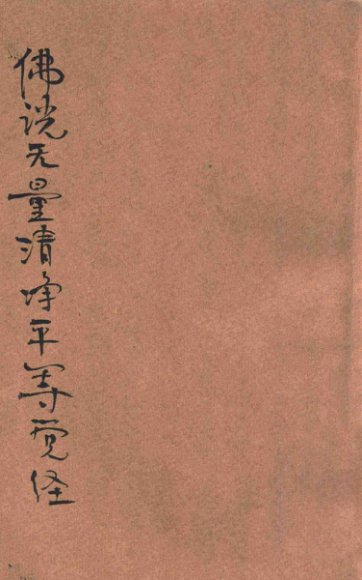 佛说无量清净平等觉经